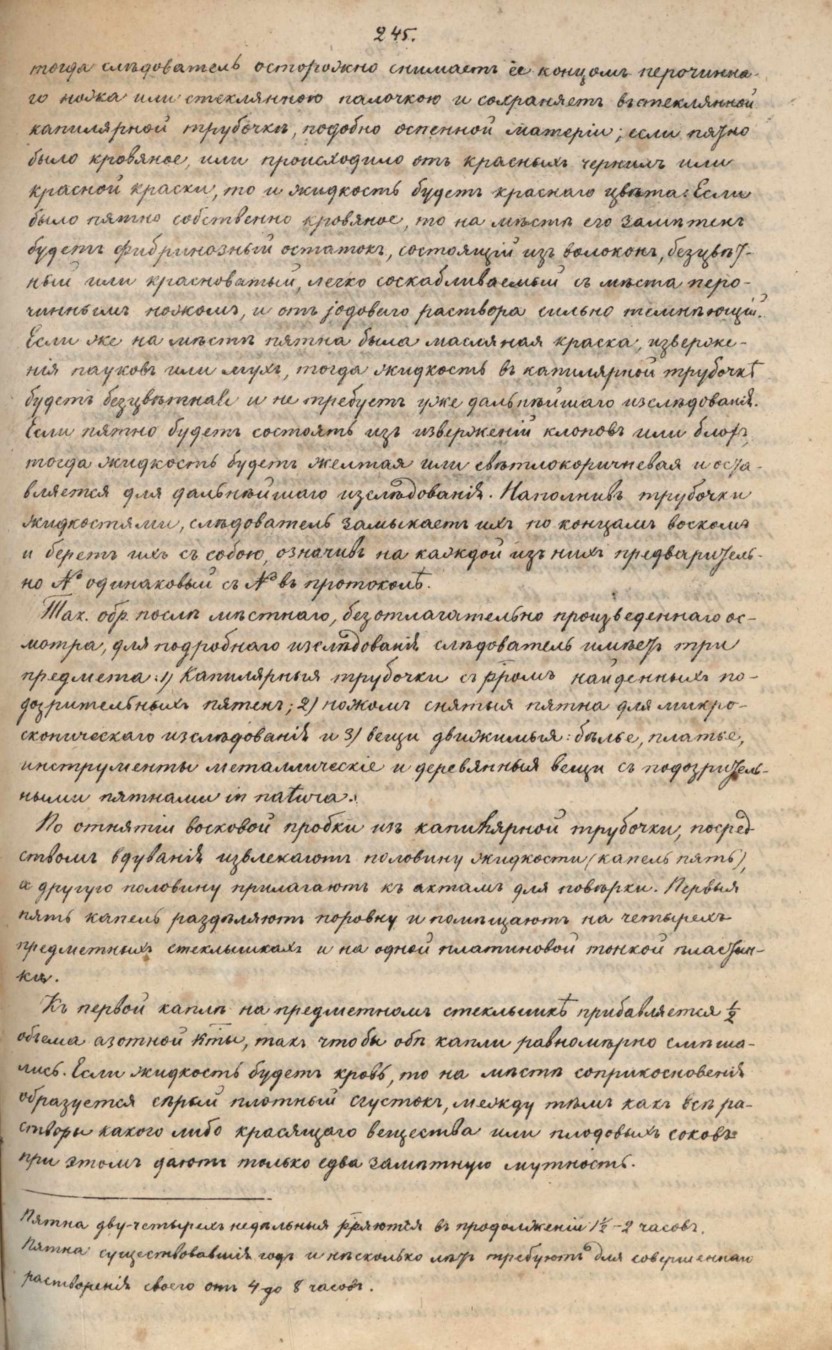 245.
тогда слѣдователь осторожно снимаетъ ее концомъ перочинна-
го ножка или стеклянною палочкою и сохраняетъ въ стеклянной
капилярной трубочкѣ, подобно оспенной матеріи; если пятно
было кровяное, или происходило отъ красныхъ чернилъ или
красной краски, то и жидкость будетъ краснаго цвѣта: Если
было пятно собственно кровяное, то на мѣстѣ его замѣтенъ
будетъ фибринозный остатокъ, состоящій изъ волоконъ, безцвѣт-
ный или красноватый, легко соскабливаемый съ мѣста перо-
чиннымъ ножомъ, и отъ jодоваго раствора сильно темнѣющій.
Если же на мѣстѣ пятна была масляная краска, изверже-
нія пауковъ или мухъ, тогда жидкость въ капилярной трубочкѣ
будетъ безцвѣтная и не требуетъ уже дальнѣйшаго изслѣдованія.
Если пятно будетъ состоять изъ изверженій клоповъ или блохъ,
тогда жидкость будетъ желтая или свѣтлокоричневая и оста-
вляется для дальнѣйшаго изслѣдованія. Наполнивъ трубочки
жидкостями, слѣдователь замыкаетъ ихъ по концамъ воскомъ
и беретъ ихъ съ собою, означивъ на каждой изъ нихъ предваритель-
но № одинаковый съ № въ протоколѣ.
Так. обр. послѣ мѣстнаго, безотлагательно произведеннаго ос-
мотра, для подробнаго изслѣдованія слѣдователь имѣетъ три
предмета: 1) Капилярныя трубочки съ рромъ найденныхъ по-
дозрительныхъ пятенъ; 2) ножомъ снятыя пятна для микро-
скопическаго изслѣдованія и 3) вещи движимыя: бѣлье, платье,
инструменты металлическіе и деревянныя вещи съ подозритель-
ными пятнами in natura.
По отнятіи восковой пробки изъ капилярной трубочки, посред
ствомъ вдуванія извлекаютъ половину жидкости (капель пять),
а другую половину прилагаютъ къ актамъ для повѣрки. Первыя
пять капель раздѣляютъ поровну и помѣщаютъ на четырехъ
предметныхъ стеклышкахъ и на одной платиновой тонкой пластин-
кѣ.
Къ первой каплѣ на предметномъ стеклышкѣ прибавляется ½
объема азотной кты, такъ чтобы обѣ капли равномѣрно смѣша-
лись. Если жидкость будетъ кровь, то на мѣстѣ соприкосновенія
образуется сѣрый плотный сгустокъ, между тѣмъ какъ всѣ ра-
створы какого либо красящаго вещества или плодовыхъ соковъ
при этомъ даютъ только едва замѣтную мутность.
Пятна двух-четырехъ недѣльныя рряются въ продолженіи 1½-2 часовъ.
Пятна существовавшія годъ и нѣсколько лѣтъ требуютъ для совершеннаго
растворенія своего отъ 4 до 8 часовъ.